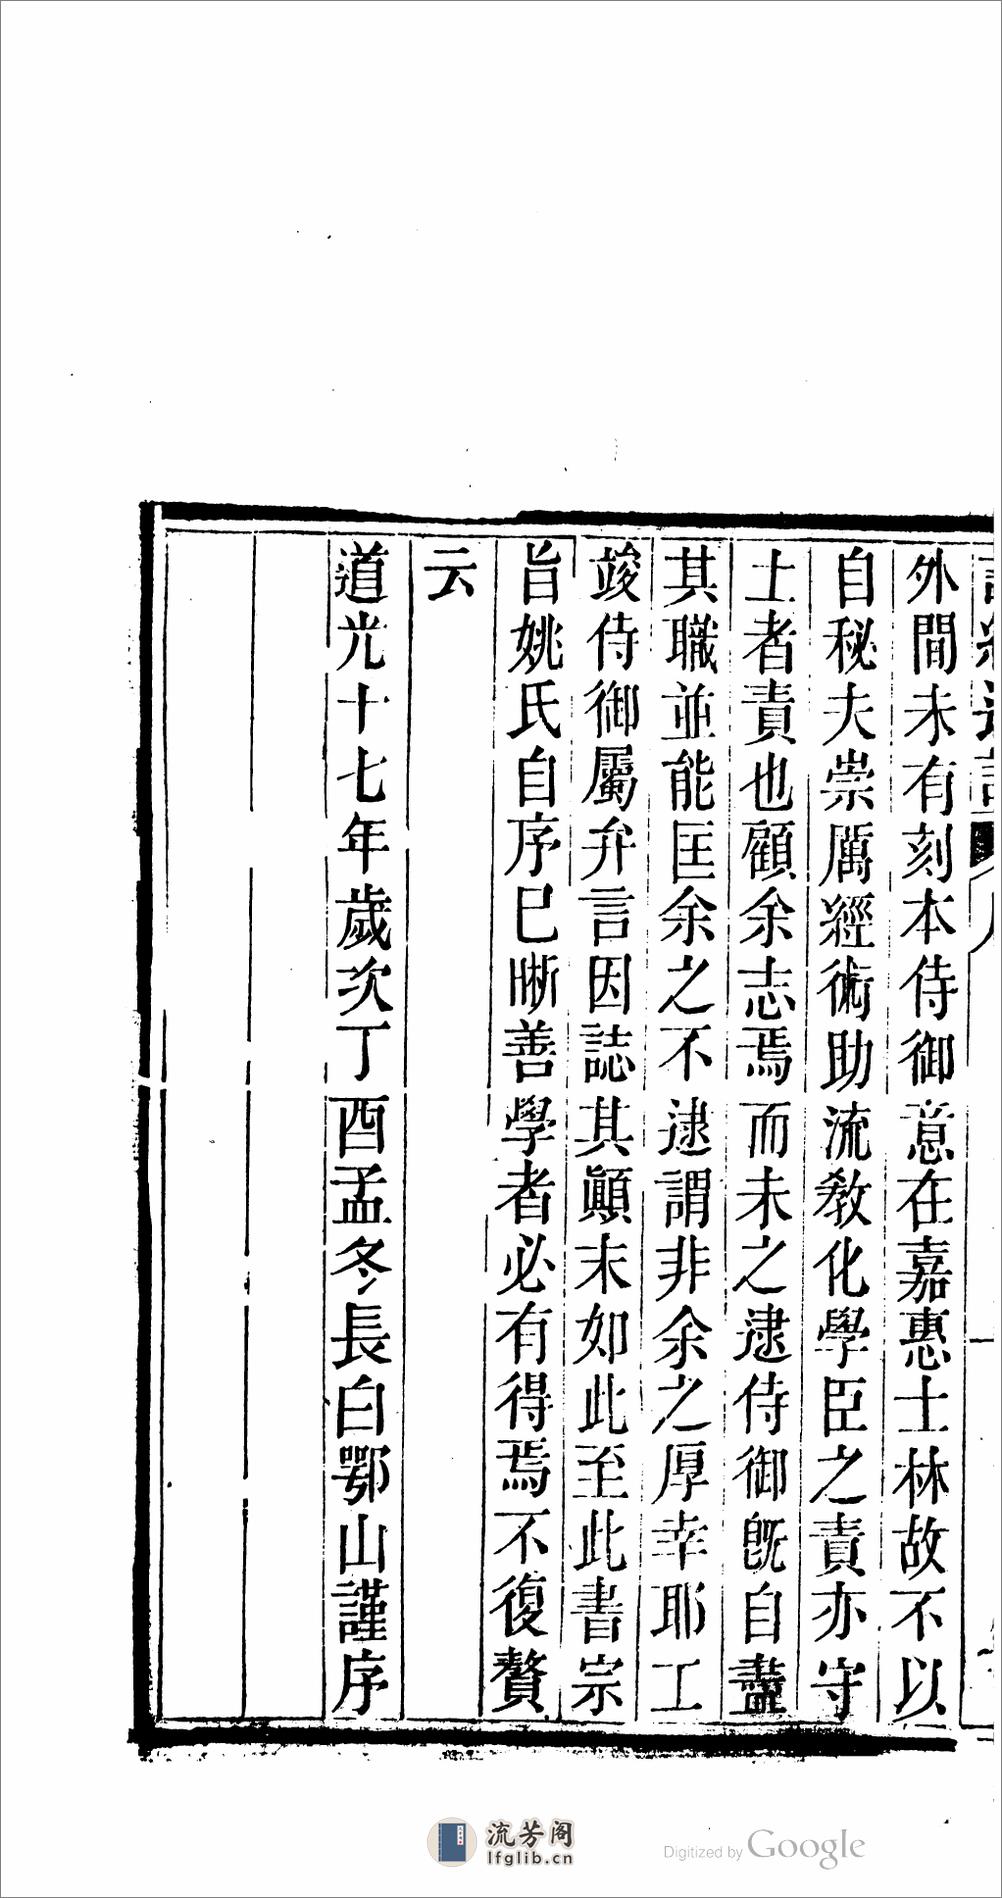 外間未有刻本侍御意在嘉惠士林故不以
自秘夫崇厲經術助流敎化學臣之責亦守
土者責也顧余志焉而未之逮侍御旣自盡
其職並能匡余之不逮謂非余之厚幸耶工
竣侍御屬弁言因誌其顚末如此至此書宗
旨姚氏自序已晰善學者必有得焉不復贅
云
道光十七年歲次丁酉孟冬長白鄂山謹序
流芳阁
lfglib.cn
Digitized by Google